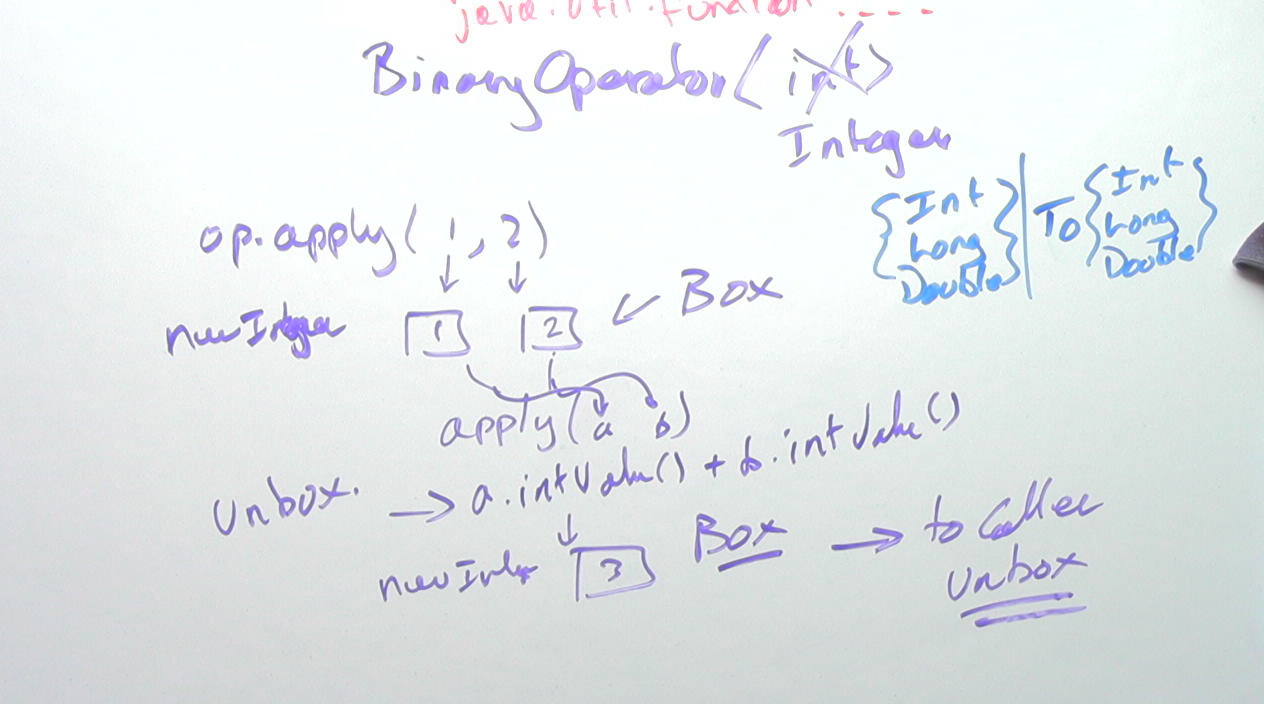 java.util.function....
BinaryOperator<int>
Integer
op.apply(1,2)
{Int Long Double} | To {Int Long Double}
new Integer 1 2 ← Box
apply(a b)
Unbox. → a.intValue() + b.intValue()
↓
new Integer 3 Box → to caller
unbox